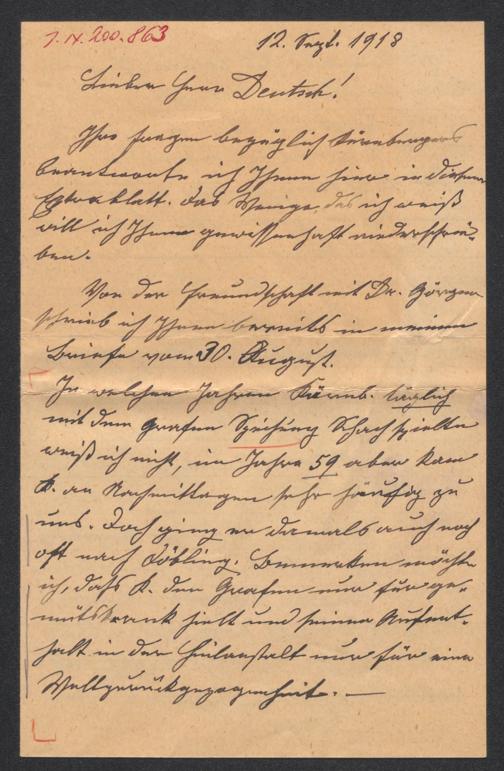 I.N. 200.863
12. Sept. 1918
Lieber Herr Deutsch!
Ihre Fragen bezüglich Kürnbergers
beantworte ich Ihnen hier in diesem
Extrablatt. Das Wenige, das ich weiß
will ich Ihnen gewissenhaft niederschrei-
ben.
Von der Freundschaft mit Dr. Görgen
schrieb ich Ihnen bereits in meinem
Briefe vom 30. August.
In welchen Jahren Kürnb. täglich
mit dem Grafen Szécheny Schach spielte
weiß ich nicht, im Jahre 59 aber kam
K. an Nachmittagen sehr häufig zu
uns. Doch ging er damals auch noch
oft nach Döbling. Bemerken möchte
ich, daß K. den Grafen nur für ge-
mütskrank hielt und seinen Aufent-
halt in der Heilanstalt nur für eine
Weltzurückgezogenheit. —